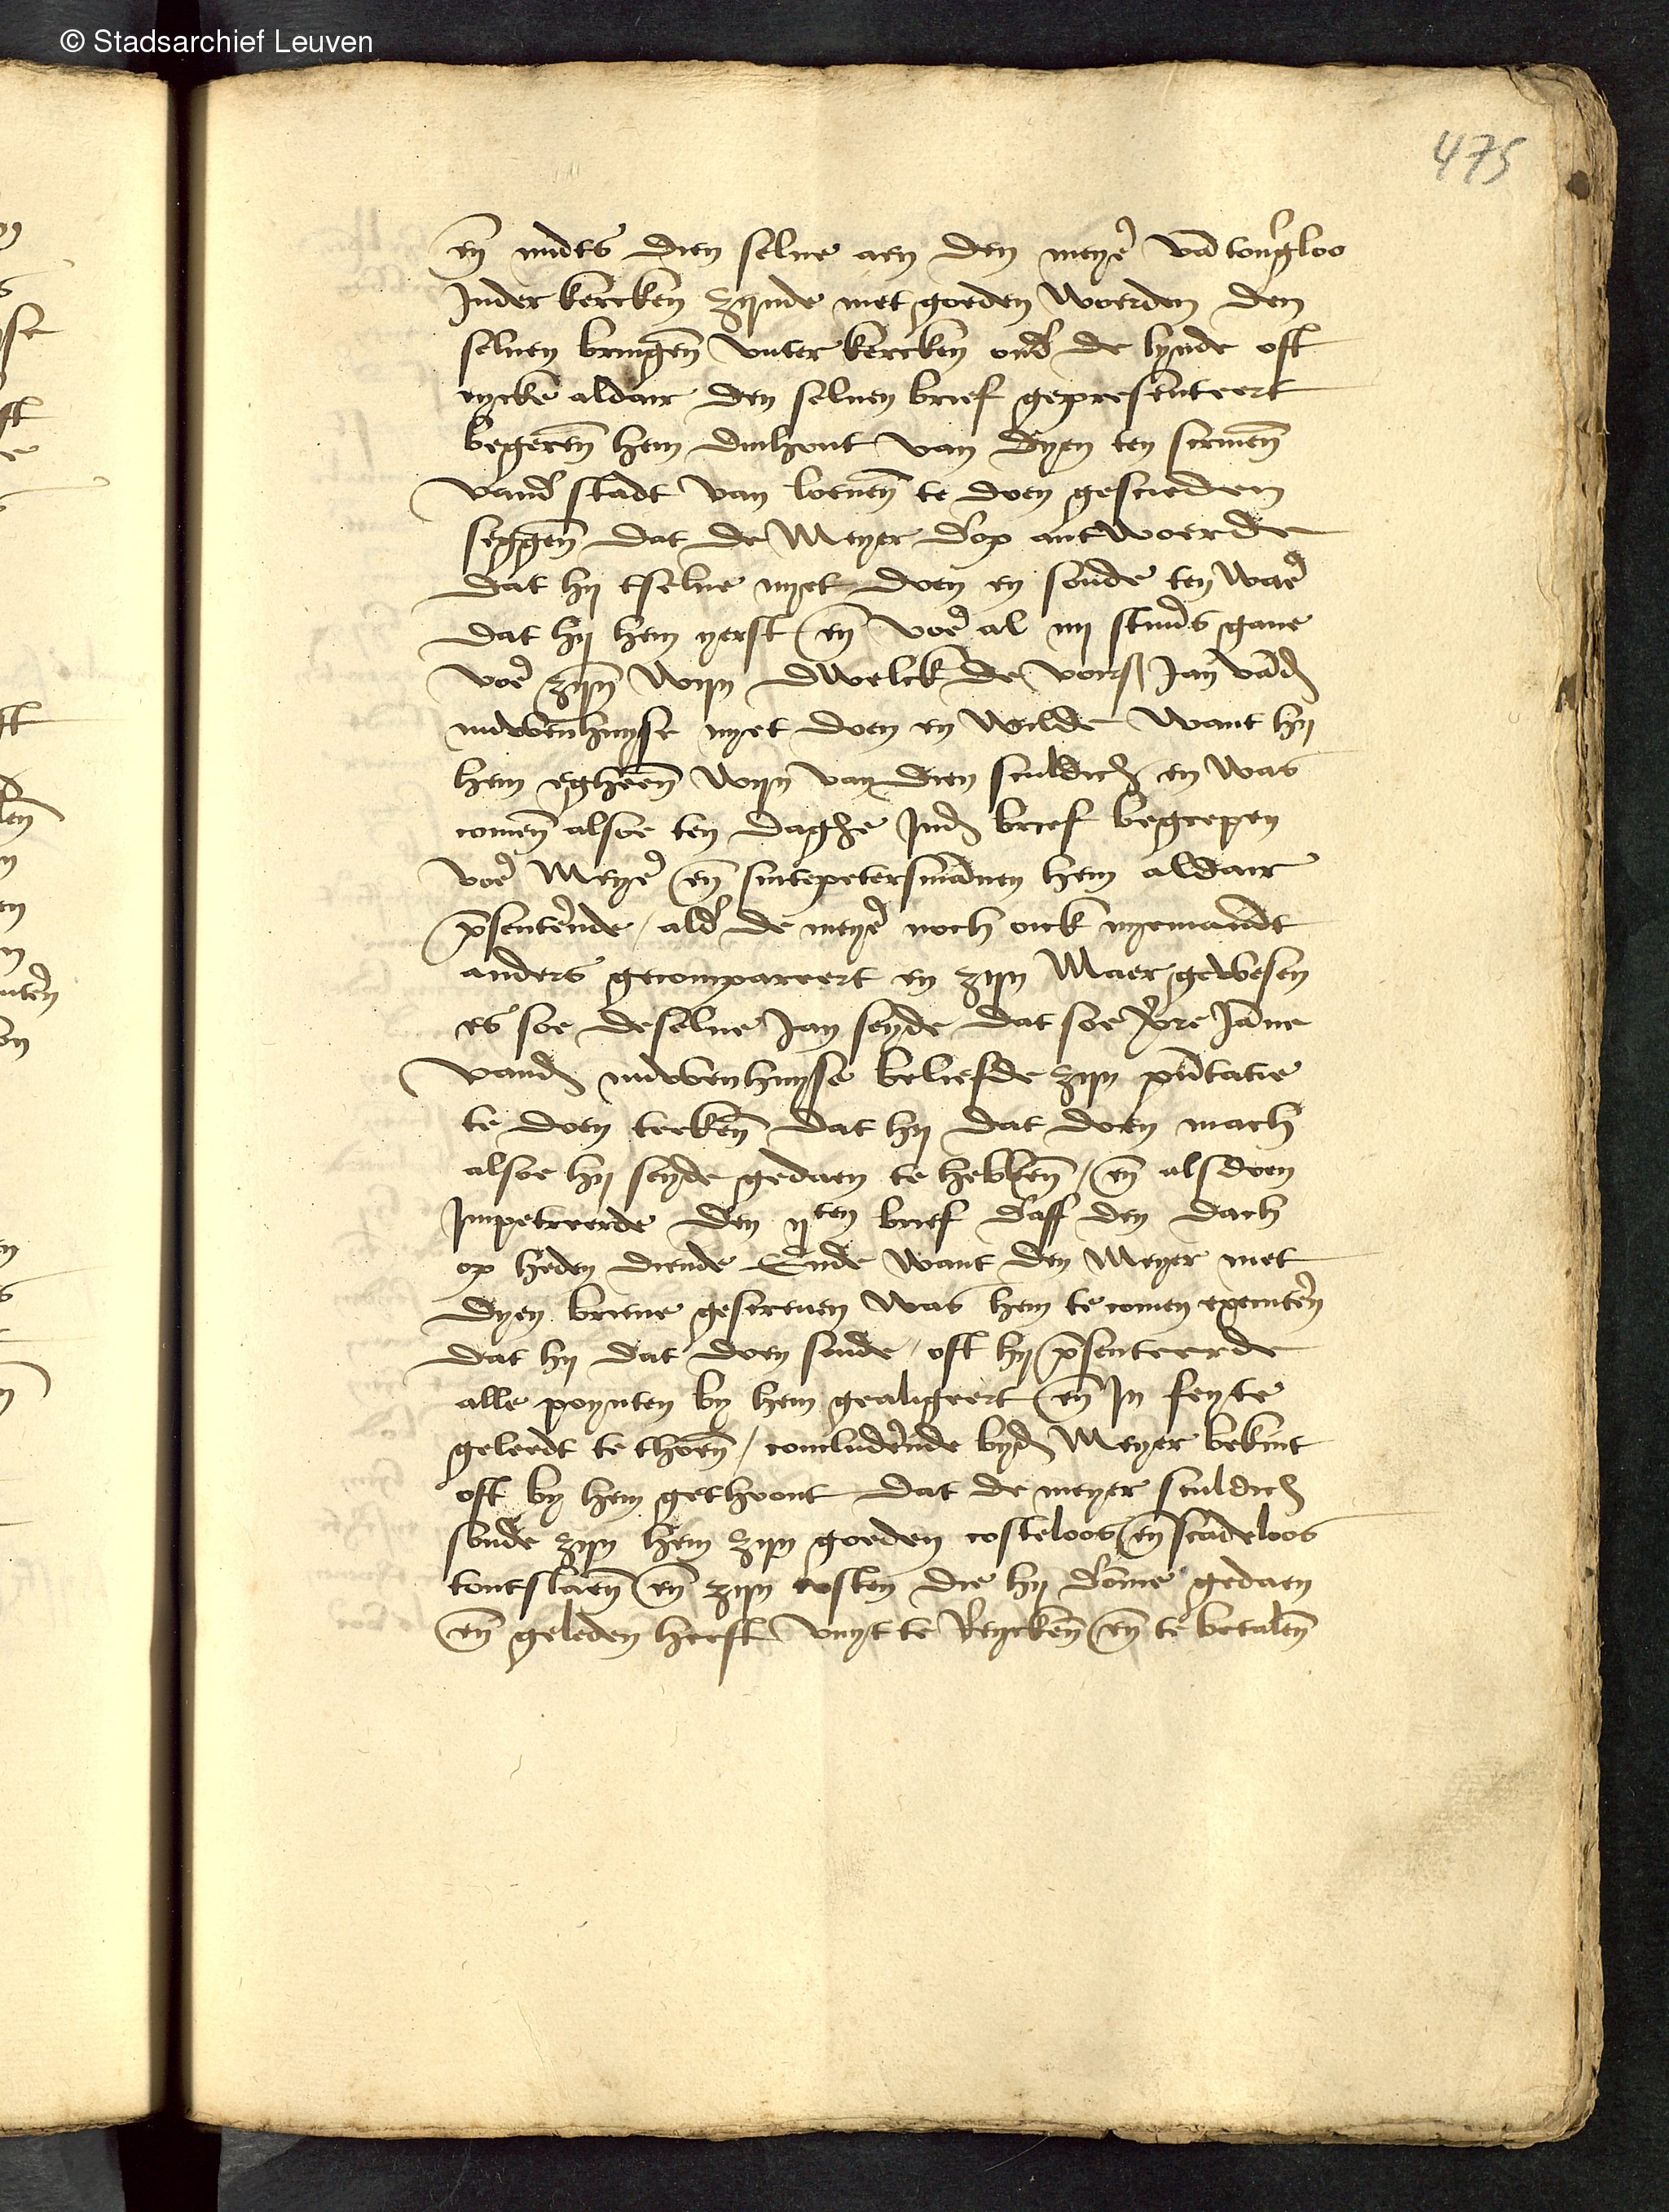 © Stadsarchief Leuven
475
en̄ mids dien selue aen den meyer̉ vā tonḡloo
Inder kercken zijnde met goeden woerden den
seluen bringen̄ vuter kercken ond̉ de lynde oft
eycke aldair den seluen brief gepresenteert
begeren̄ hem dinhout van dyen ten scriuen̄
vand̉ stadt van loeuen̄ te doen gescieden
seggen̄ dat de Meyer d̉op antwoerde
dat hij tselue nyet doen en soude ten waer̉
dat hij hem yerst en̄ voer̉ al iiij stuuers gaue
voer̉ zijn̄ wijn dwelck de vors Jan vand̄
nuwenhuyse nyet doen en wilde want hij
hem egheen̄ wijn van dien sculdich en was
comen̄ alsoe ten daghe Ind̄ brief begrepen
voer̉ Meyer̉ en̄ sintepetersmānen hem aldair
p̄senter̉nde / ald̉ de meyer̉ noch oick nyemandt
anders gecompareert en zijn Maer gewesen
es soe deselue Jan seyde dat soe Janne
vand̄ nuwenhuyse beliefde zijn p̄ntatie
te doen teeken̄ dat hij dat doen mach
alsoe hij seyde gedaen te hebben̄ / en̄ alsdoen
Impetreerde den ijten brief d̉aff den dach
op heden diende Ende want den Meyer met
dyen brieue gescreuen was hem te comen executer̉n
dat hij dat doen soude / oft hij p̄senteerde
alle poynten by hem geallgeert en̄ In feyte
geleedt te thoen̄ / concluder̉nde byd̄ Meyer bekint
oft by hem gethoont dat de meyer sculdich
soude zijn hem zijn goeden costeloos en̄ scadeloos
tontslaen̄ en̄ zijn costen die hij d̉omme gedaen
en̄ geleden heeft vuyt te Reycken̄ en̄ te betalen̄